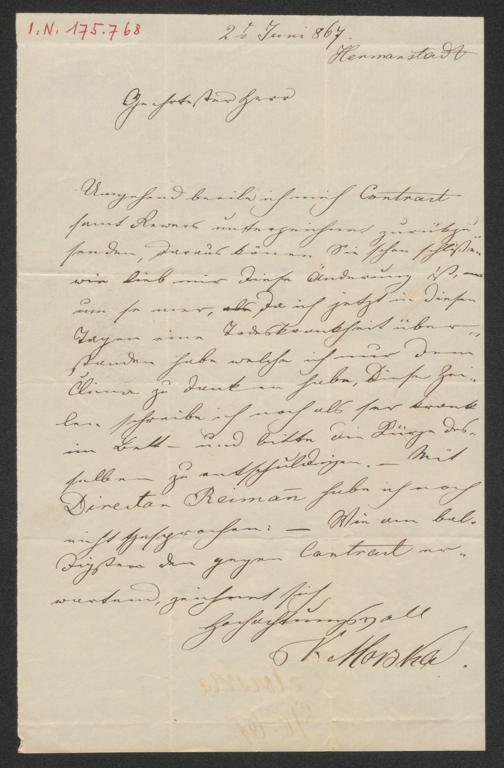 I.N. 175.768
2t Juni 867.
Hermanstadt
Geehrtester Herr
Umgehend beeile ich mich Contract
samt Rewers unterzeichnet zurükzu
senden, daraus könen Sie schon schlißen
wie lieb mir diese Änderung ist,
um so mer, als da ich jetzt in diesen
Tagen eine Todeskrankheit über-
standen habe welche ich nur dem
Clima zu danken habe, diese Zei-
len schreibe ich noch als ser krank
im Bett – und bitte die Kürze des-
selben zu entschuldigen. – Mit
Director Reimañ habe ich noch
nicht gesprochen: – Wie am bal-
digsten den gegen Contract er-
wartend, zeichnet sich
Hochachtungsvoll
V. Morska.